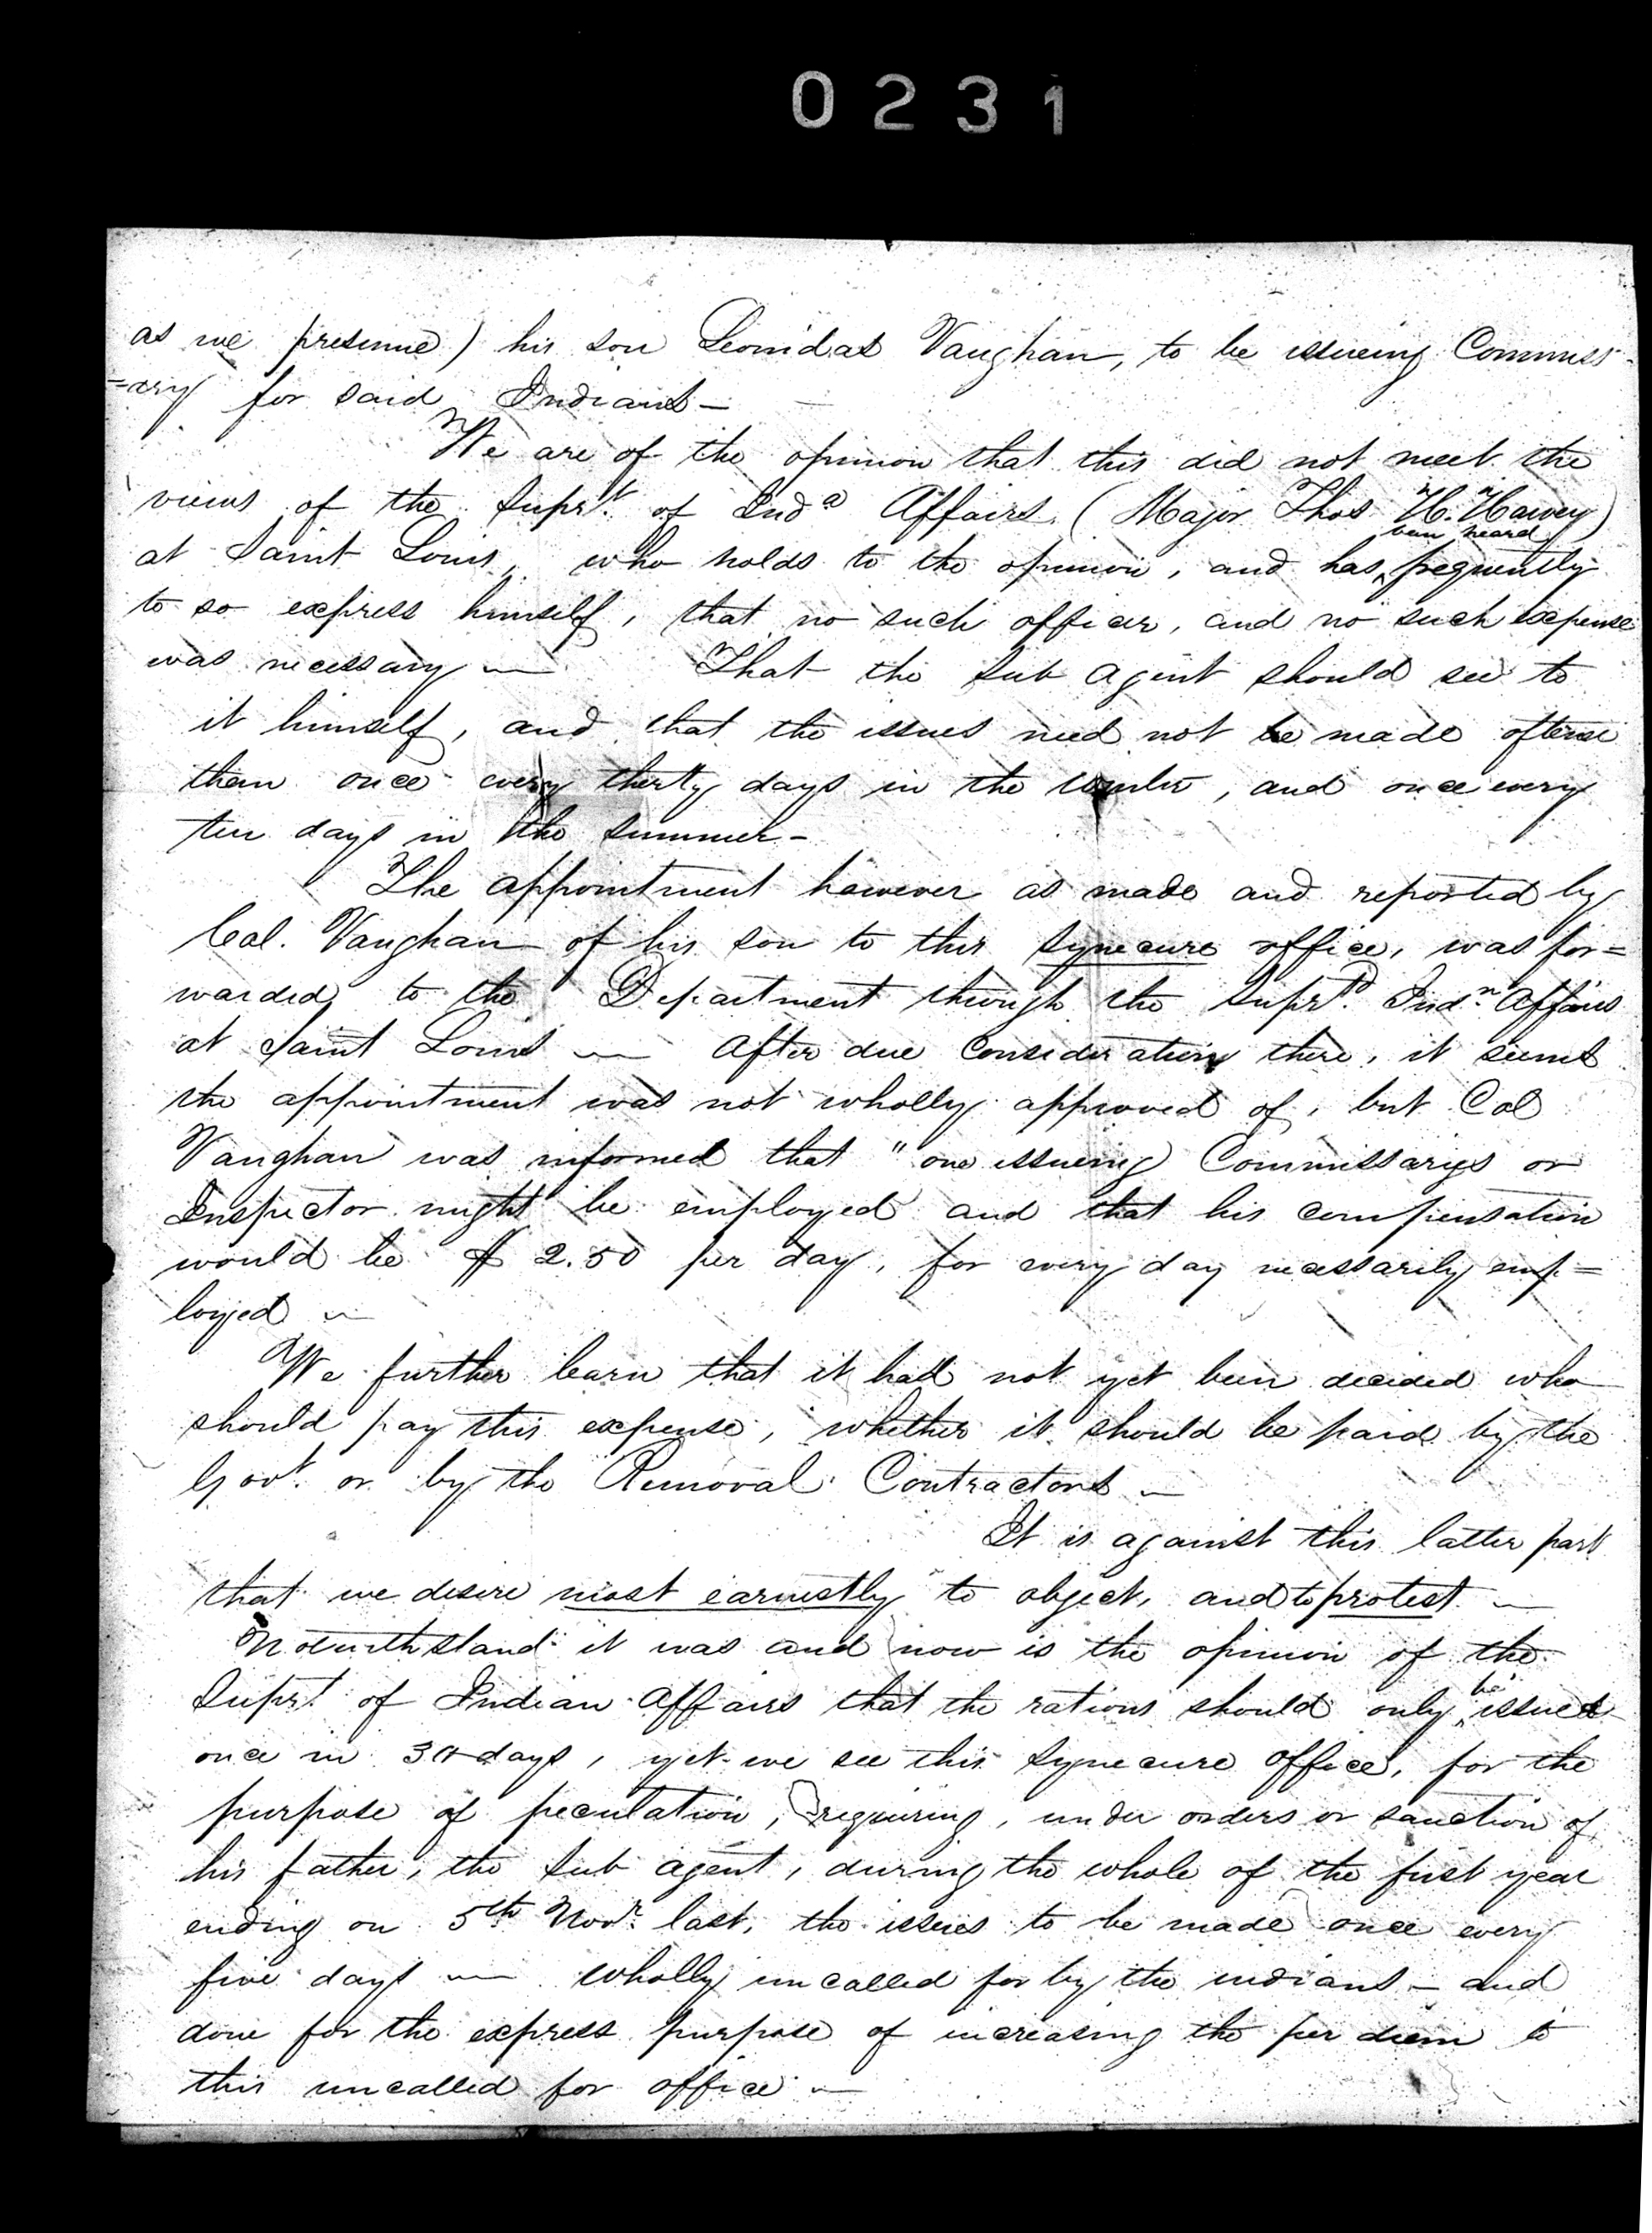 0231
as we presume) his son Leonidas Vaughan, to be issueing Commiss-
=ary for said Indians -
We are of the opinion that this did not meet the
views of the Supr.t of Ind.n Affairs (Major Thos H. Harvey)
at Saint Louis, who holds to the opinion, and has ^been heard frequently
to so express himself, that no such officer, and no such expense
was necessary — That the Sub Agent should see to
it himself, and that the issues need not be made oftener
than once every thirty days in the winter, and once every
ten days in the Summer -
The appointment however as made and reported by
Col. Vaughan of his son to this synecure office, was for=
warded to the Department through the Supr.t Ind.n Affairs
at Saint Louis — After due Consideration there, it seems
the appointment was not wholly approved of, but Col
Vaughan was informed that "one issueing Commissarys or
Inspector might be employed and that his compensation
would be $ 2.50 per day, for every day necessarily emp=
loyed —
We further learn that it had not yet been decided who
should pay this expense, whether it should be paid by the
Govt. or by the Removal Contractors —
It is against this latter part
that we desire most earnestly to object, and to protest —
Notwithstand.g it was and now is the opinion of the
Suprt. of Indian Affairs that the rations should only ^be issued
once in 30 days, yet we see this Synecure Office, for the
purpose of peculation, requiring, under orders or sanction of
his father, the Sub agent, during the whole of the first year
ending on 5th Novr. last, the issues to be made once every
five days — wholly uncalled for by the indians - and
done for the express purpose of increasing the per diem to
this uncalled for office —